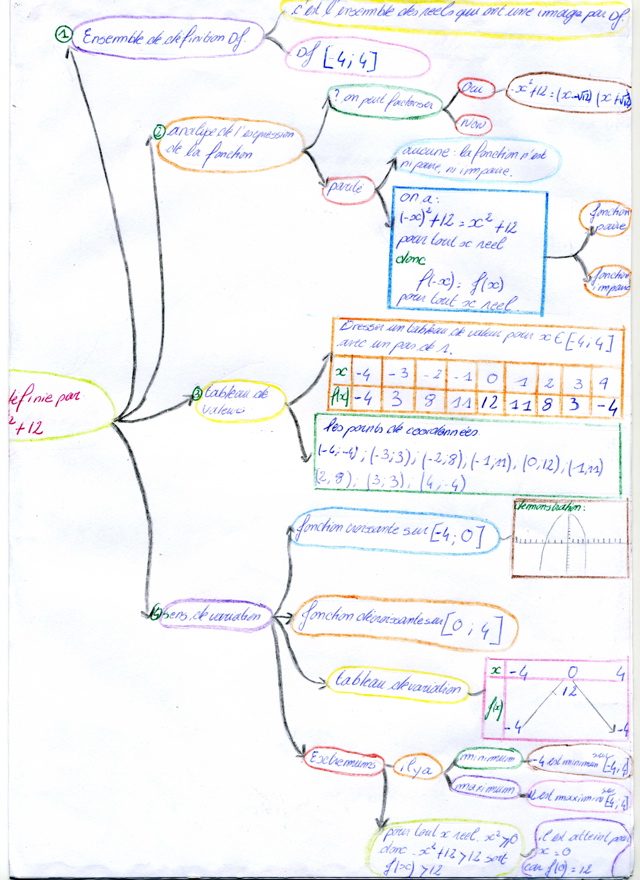 c'est l'ensemble des reels qui ont une image par Df
① Ensemble de definition Df
Df [-4; 4]
② analyse de l'expression
de la fonction
? on peut factoriser
Oui
-x²+12 = (x-√12) (x+√12)
Non
parité
aucune : la fonction n'est
ni paire, ni impaire.
on a :
(-x)²+12 = x²+12
pour tout x reel
donc
f(-x) = f(x)
pour tout x reel
fonction
paire
fonction
impaire
definie par
²+12
③ tableau de
valeurs
Dresser un tableau de valeur pour x ∈ [-4; 4]
avec un pas de 1.
x -4 -3 -2 -1 0 1 2 3 4
f(x) -4 3 8 11 12 11 8 3 -4
les points de coordonnées
(-4;-4) ; (-3;3) ; (-2,8) ; (-1,11) ; (0,12) ; (1,11)
(2,8) ; (3;3) ; (4,-4)
sens de variation
fonction croissante sur [-4; 0]
demonstration:
fonction décroissante sur [0; 4]
tableau de variation
x -4 0 4
f(x) -4 12 -4
Extremums
il y a
minimum
-4 est minimum sur [-4; 4]
maximum
est maximum sur [-4; 4]
pour tout x reel x² ⩾ 0
donc -x²+12 ⩾ 12 soit
f(x) ⩾ 12
il est atteint pour
x = 0
car f(0) = 12